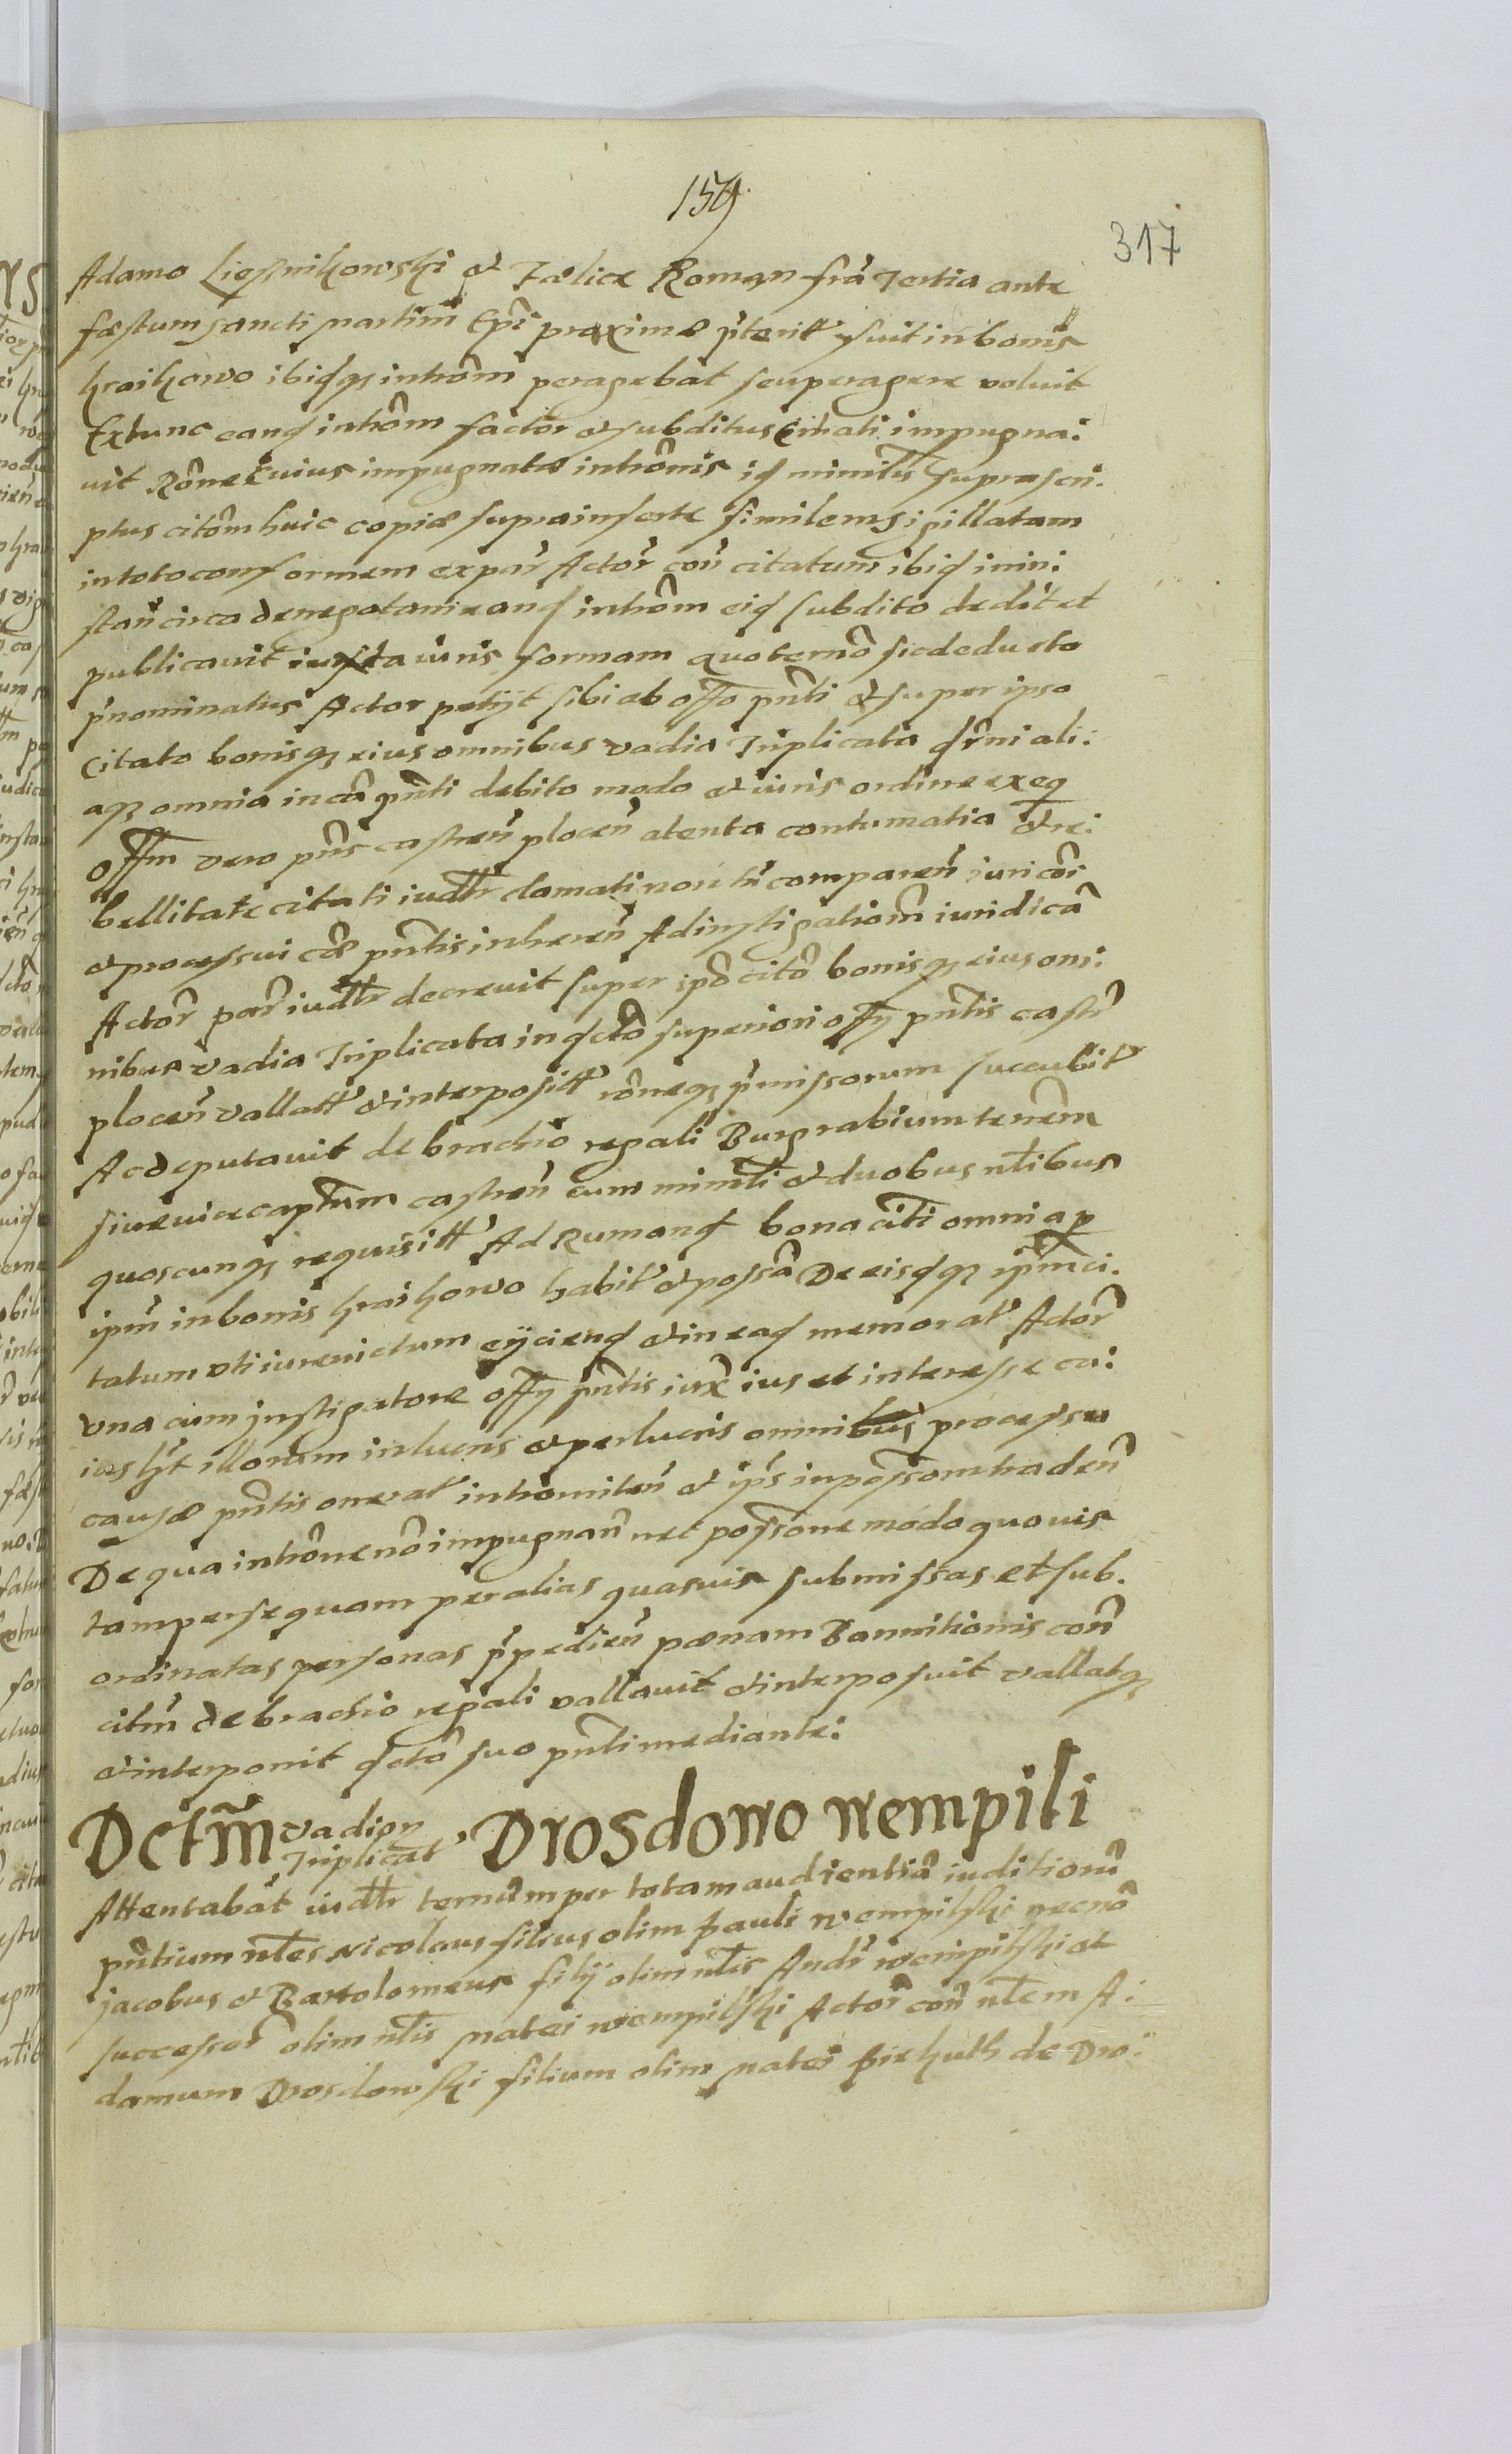 159.
317
Adamo Liesnikowski et Fælice Roman frã Tertia ante
fæstum sancti martini Epi proxime pterit fuit in bonis
kraikowo ibidq intrõm peragebat seu peragere voluit
Extunc eand intrõm factor et subditus Citati impugna:
vit Rõne Cuius impugnatæ intrõnis id minlis suprascri:
ptus citõm huic copiæ suprainserte similem sigillatam
in toto conformem ex par Actor con citatum ibid in in:
stan circa denegatam eand intrõm eid subdito dedit et
publicavit iuxta iuris formam quo termo sic deducto
pnominatus Actor petijt sibi ab offo pnti et super ipso
Citato bonisq eius omnibus vadia Triplicata drni ali:
aq omnia in cã pnti debito modo et iuris ordine exeq
Offm vero pns castren plocen atenta contumatia et re:
bellitate citati iudlr clamati non tn comparen iuri cõi
et processui cæ pntis inheren Ad instigatiom iuridicã
Actor par iudlr decrevit super ipo citõ bonisq eius om:
nibus vadia Triplicata in dcto superiori offy pntis castr
plocen vallatt et interposit rõneq pmissorum succubit
Ac deputavit de brachio regali Burgrabium tenem
sive vicecaptum castren cum minlli et duobus nlibus
quoscunq requisitt Ad Rumand bona citi omnia p
ipm in bonis kraikowo habit et possã De eisdq ipm ci:
tatum vti iurevictum eijciend et in ead memorat Actor
vna cum instigatore offy pntis iux ius et interesse cu:
iusht illorum in lucris et perlucris omnibus processu
causæ pntis onerat intromiten et ips in possom traden
De qua intrõne nõ impugnan nec possone modo quovis
tam per se quam per alias quasvis submissas et sub:
ordinatas personas ppedien pænam Bannitionis con
citm de brachio regali vallavit et interposuit vallatq
et interponit dcto suo pnti mediante:
Dctm vadior Triplicat Drosdowo wempili
Attentabat iudlr ternum per totam audientiã iuditiorũ
pntium nles Nicolaus filius olim pauli wempilski necnõ
jacobus et Bartolomeus filij olim nlis Andr wempilski et
successor olim nlis matei wempilski Actor con nlem A:
damum Drosdowski filium olim matei pirhuth de Dro: